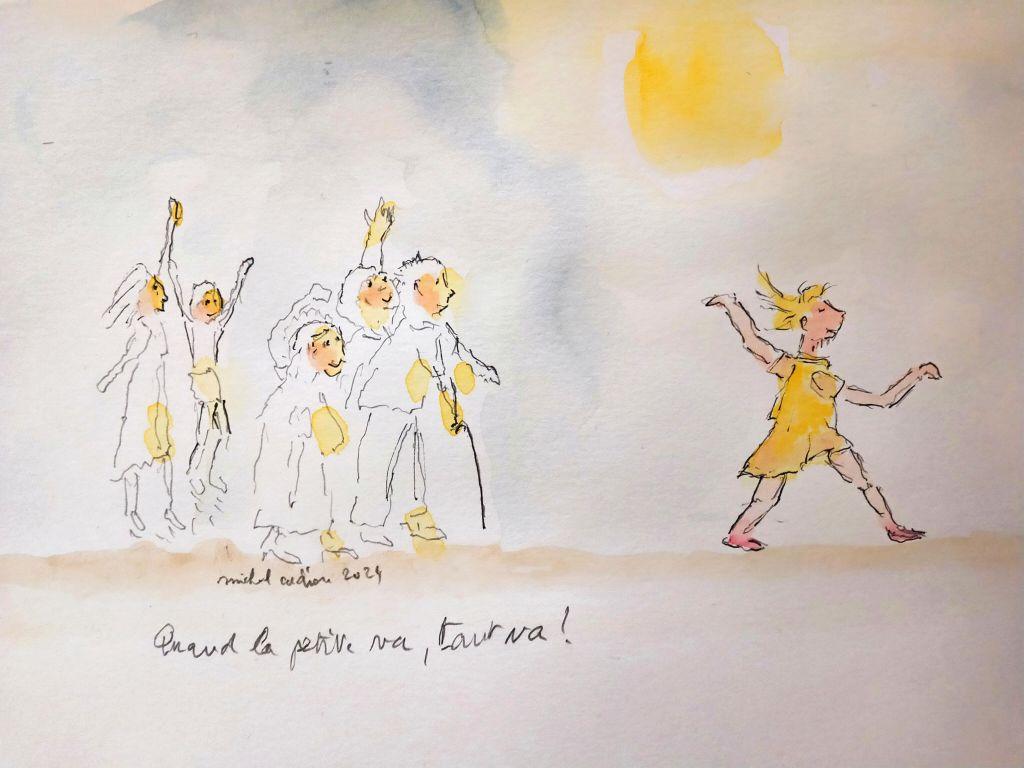 michel 2024
Quand la petite va, tout va !